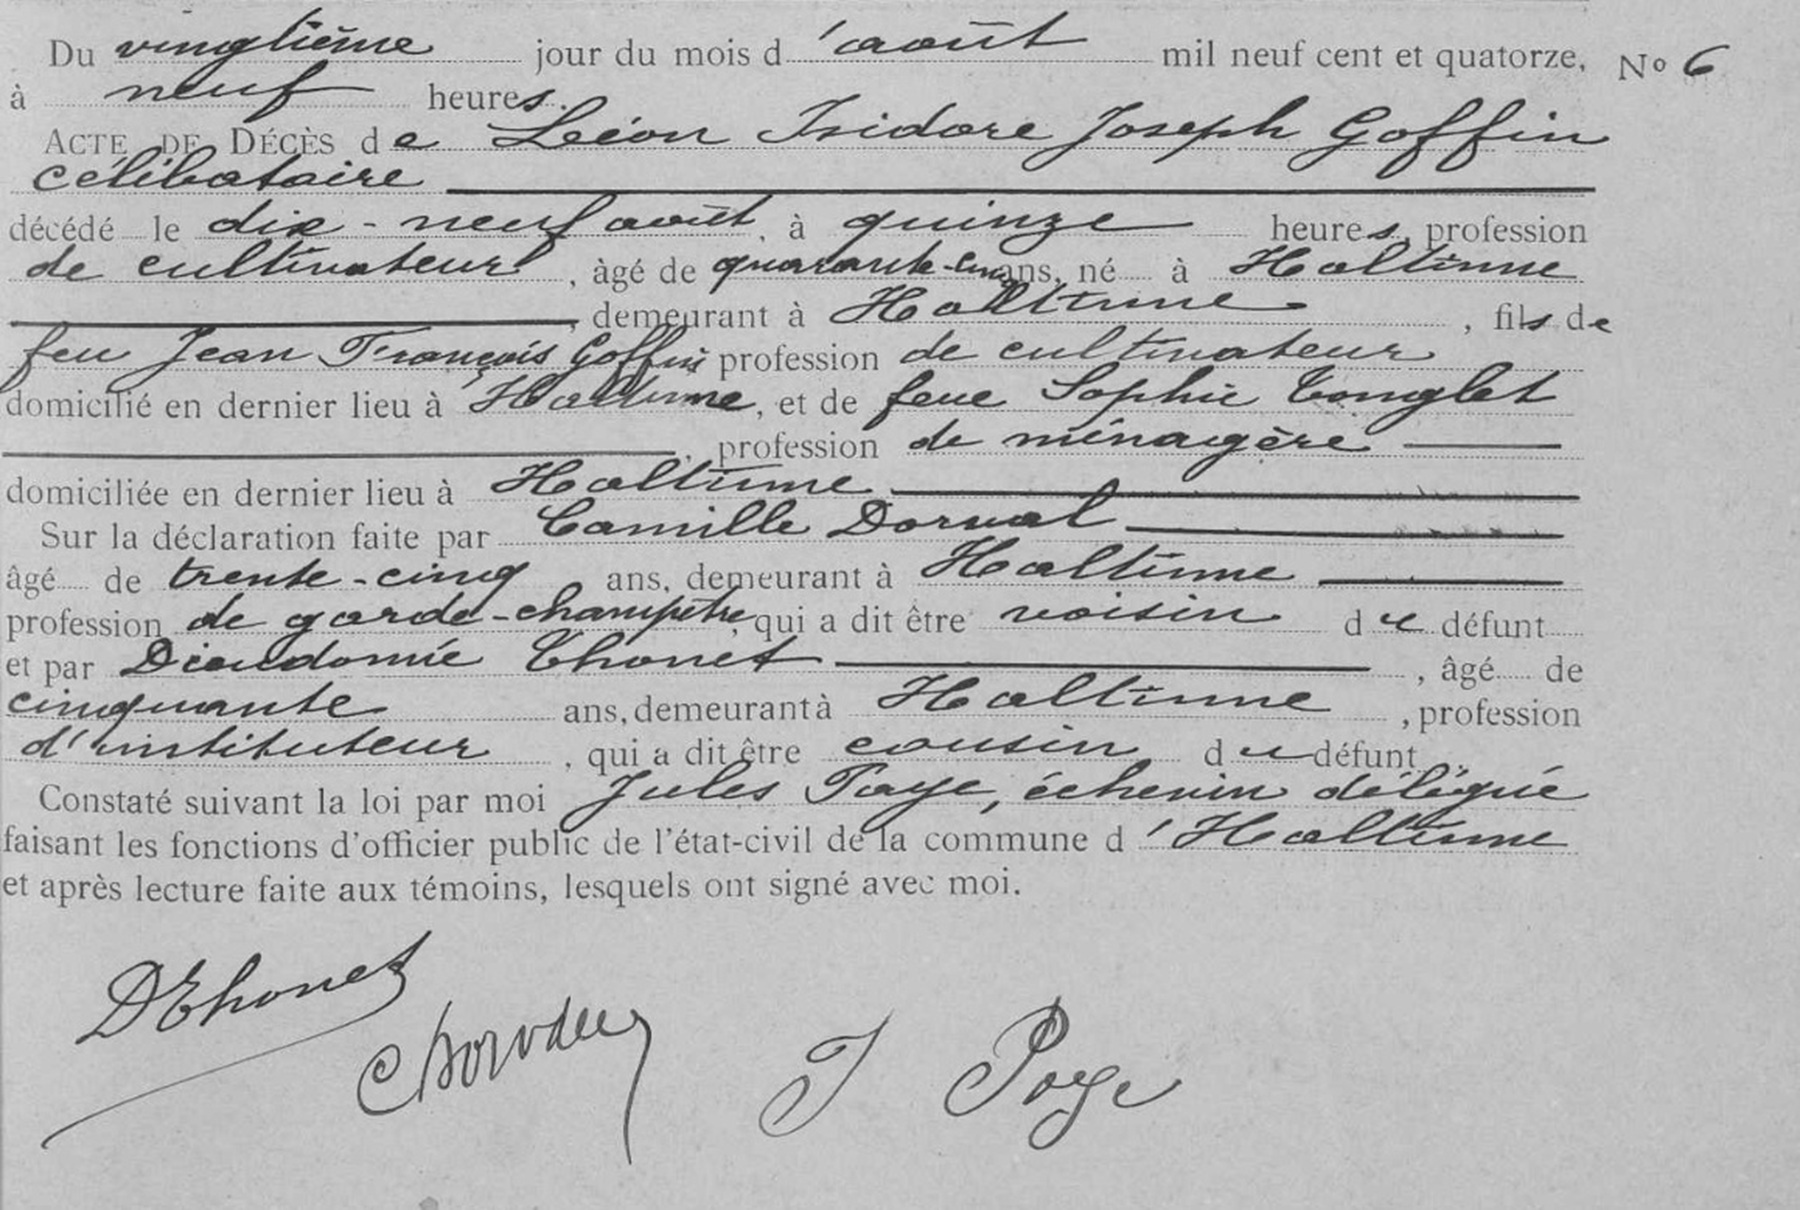 Du vingtième jour du mois d'août mil neuf cent et quatorze, No 6
à neuf heures.
ACTE DE DÉCÈS de Léon Isidore Joseph Goffin
célibataire
décédé le dix-neuf août, à quinze heures, profession
de cultivateur, âgé de quarante-cinq ans, né à Haltinne
, demeurant à Haltinne, fils de
feu Jean François Goffin profession de cultivateur
domicilié en dernier lieu à Haltinne, et de feue Sophie Tonglet
, profession de ménagère
domiciliée en dernier lieu à Haltinne
Sur la déclaration faite par Camille Dorval
âgé de trente-cinq ans, demeurant à Haltinne
profession de garde-champêtre, qui a dit être voisin du défunt
et par Dieudonné Thonet, âgé de
cinquante ans, demeurant à Haltinne, profession
d'instituteur, qui a dit être cousin du défunt
Constaté suivant la loi par moi Jules Paye, échevin délégué
faisant les fonctions d'officier public de l'état-civil de la commune d'Haltinne
et après lecture faite aux témoins, lesquels ont signé avec moi.
DThonet
J Paye